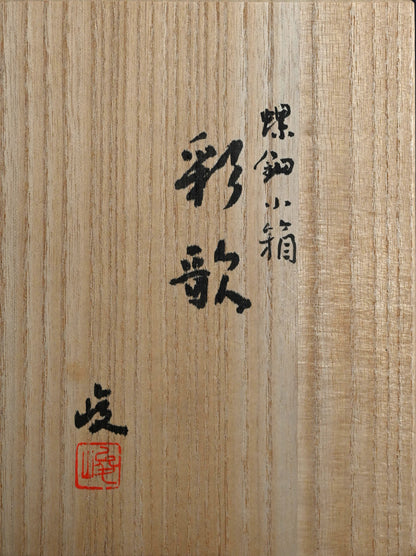 螺鈿小箱
彩歌
峻